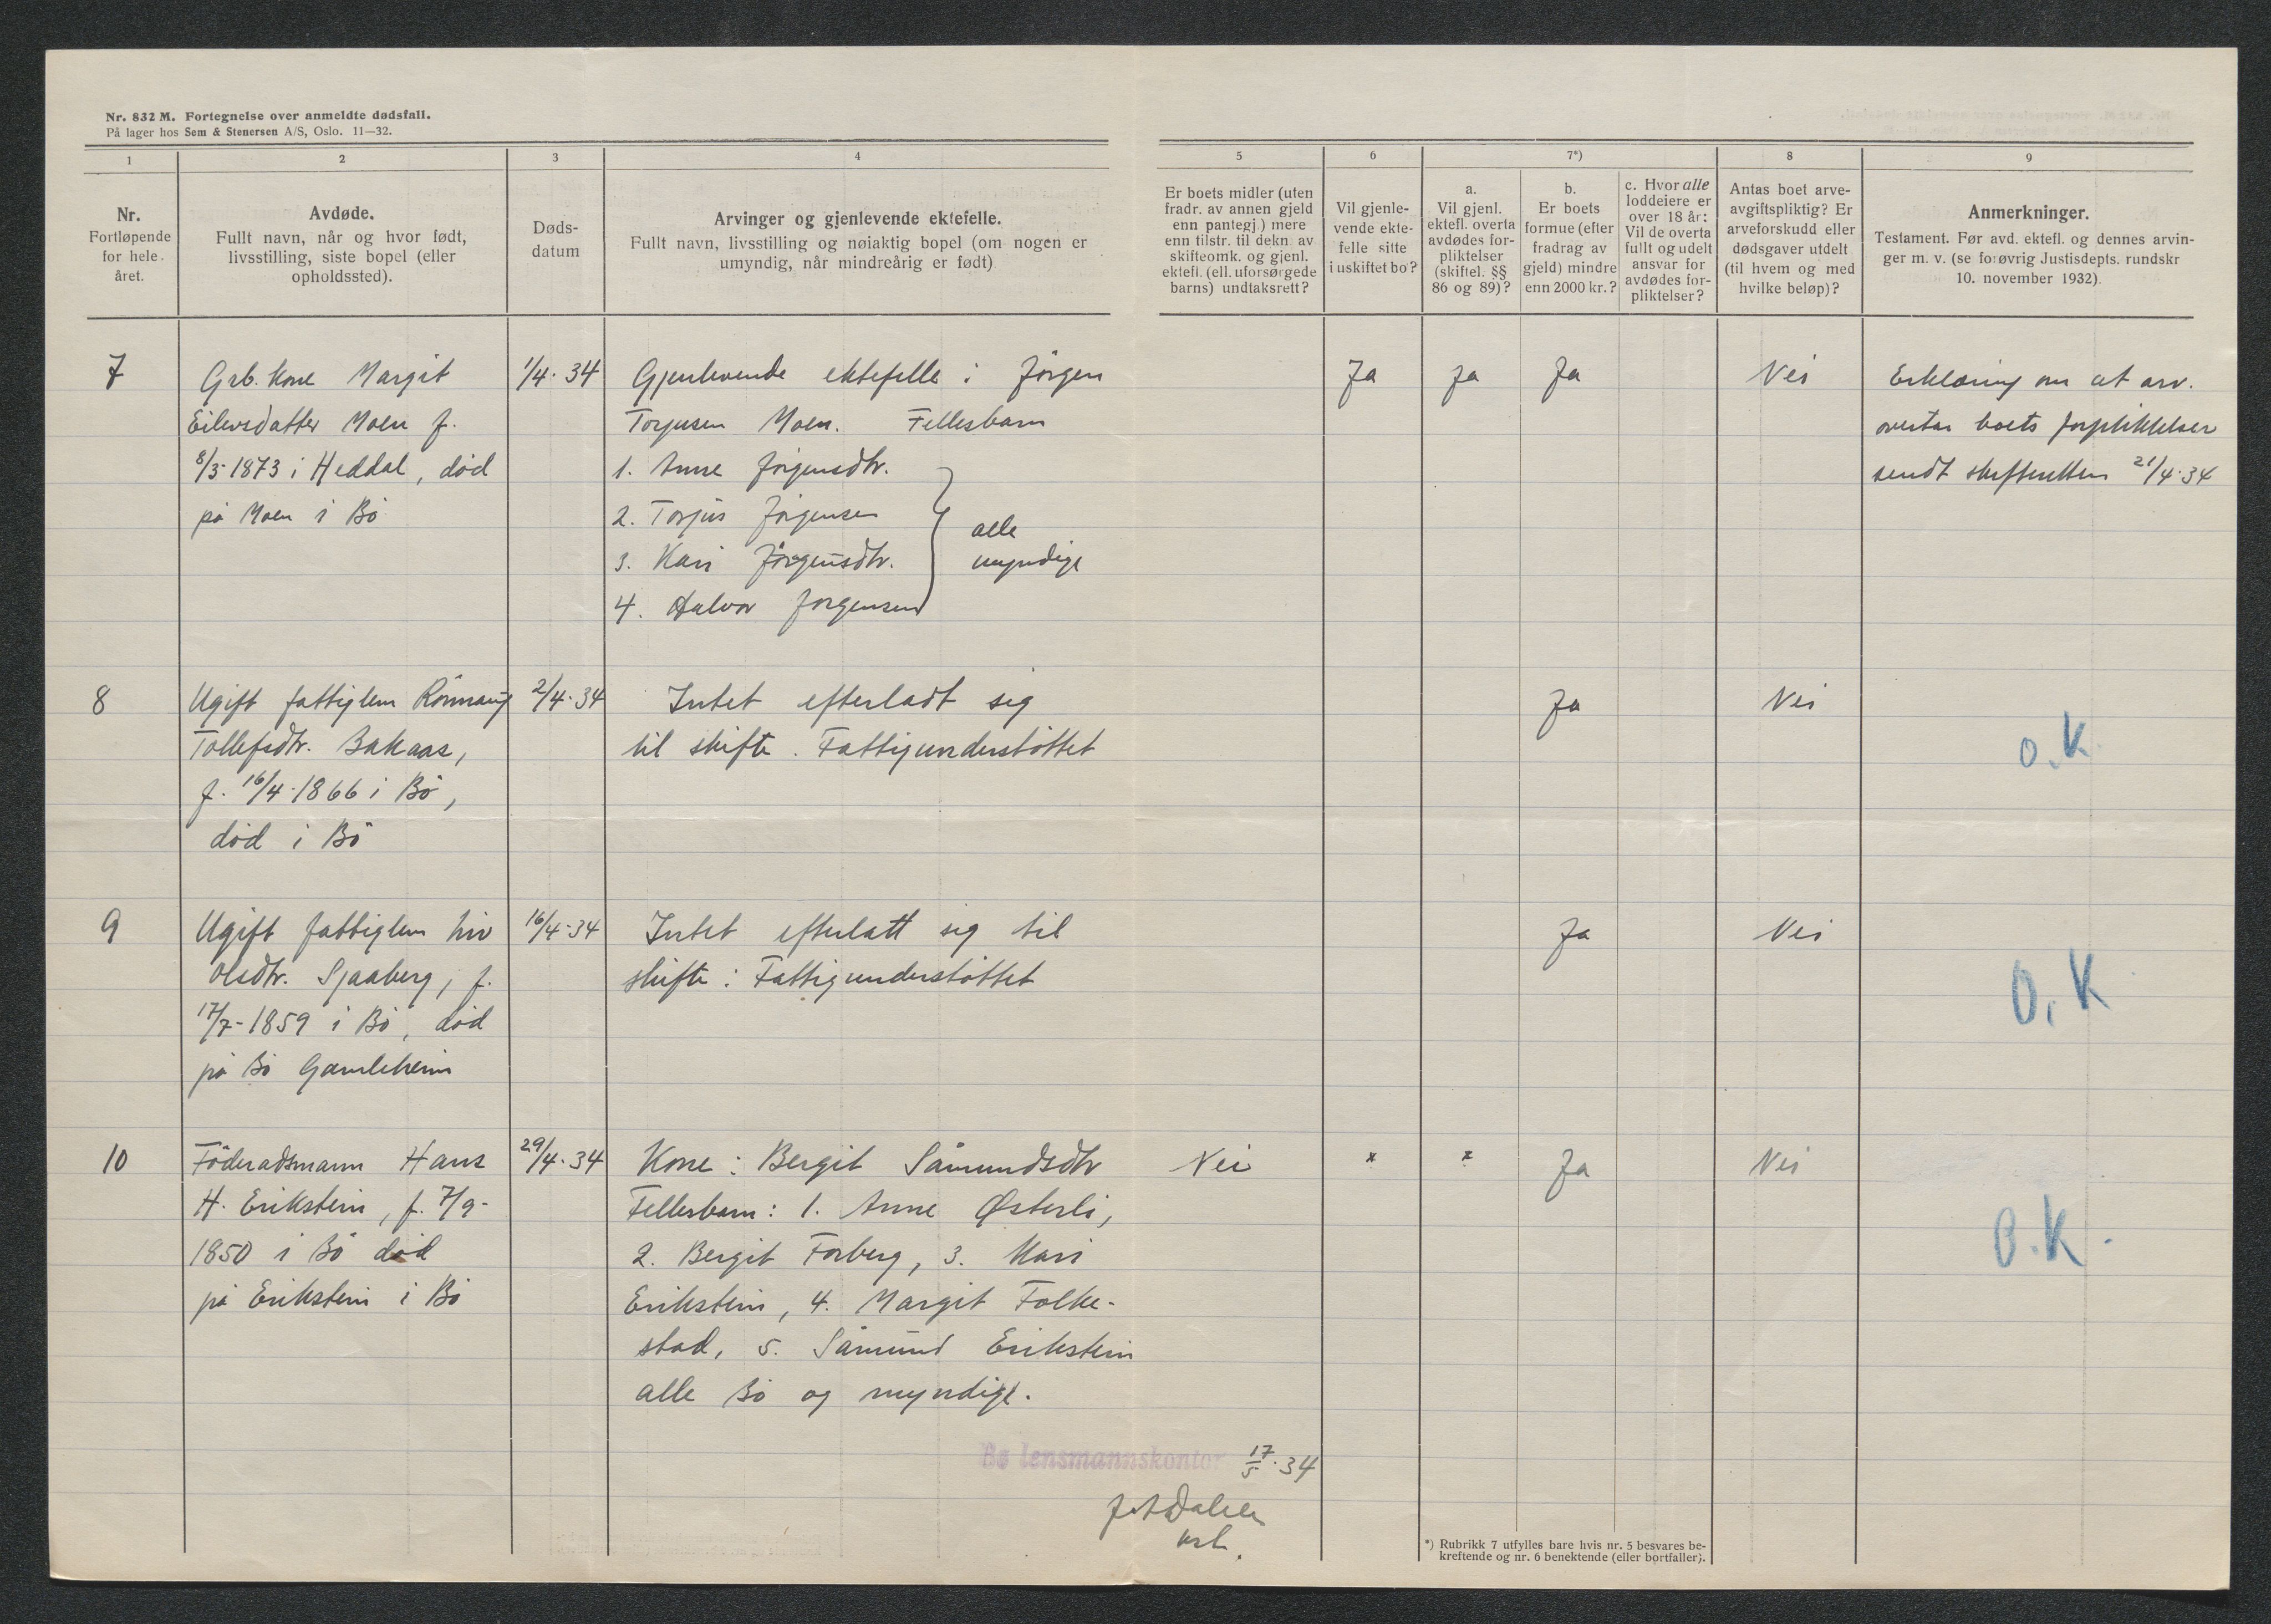 Nr. 832 M. Fortegnelse over anmeldte dødsfall.
På lager hos Sem & Stenersen A/S, Oslo. 11—32.
1
2
3
4
5
6
7*)
8
9
Nr.
Fortløpende
for hele
året.
Avdøde.
Fullt navn, når og hvor født,
livsstilling, siste bopel (eller
opholdssted).
Døds-
datum
Arvinger og gjenlevende ektefelle.
Fullt navn, livsstilling og nøiaktig bopel (om nogen er
umyndig, når mindreårig er født)
Er boets midler (uten
fradr. av annen gjeld
enn pantegj.) mere
enn tilstr. til dekn. av
skifteomk. og gjenl.
ektefl. (ell. uforsørgede
barns) undtaksrett?
Vil gjenle-
vende ekte-
felle sitte
i uskiftet bo?
a.
Vil gjenl.
ektefl. overta
avdødes for-
pliktelser
(skiftel. §§
86 og 89)?
b.
Er boets
formue (efter
fradrag av
gjeld) mindre
enn 2000 kr.?
c. Hvor alle
loddeiere er
over 18 år:
Vil de overta
fullt og udelt
ansvar for
avdødes for-
pliktelser?
Antas boet arve-
avgiftspliktig? Er
arveforskudd eller
dødsgaver utdelt
(til hvem og med
hvilke beløp)?
Anmerkninger.
Testament. Før avd. ektefl. og dennes arvin-
ger m. v. (se forøvrig Justisdepts. rundskr
10. november 1932).
7
Grb. kone Margit
Eilevsdatter Moen f.
8/5-1873 i Heddal, død
på Moen i Bö
1/4-34
Gjenlevende ektefelle : Jörgen
Torjusen Moen. Fellesbarn
1. Anne Jörgensdtr.
2. Torjus Jörgensen
3. Kari Jörgensdtr.
4. Halvor Jorgensen
alle
myndige
Ja
Ja
Ja
Nei
Erklæring om at arv.
overtar boets forpliktelser
sendt skifteretten 21/4-34
8
Ugift fattiglem Rönnaug
Tollefsdtr. Bakaas,
f. 16/4-1866 i Bö,
död i Bö
2/4-34
Intet efterladt sig
til skifte. Fattigunderstöttet
Ja
Nei
O.K
9
Ugift fattiglem Liv
Olsdtr. Sjaaberg, f.
17/7-1859 i Bö, död
på Bö Gamleheim
16/4-34
Intet efterlatt sig til
skifte : Fattigunderstöttet
Ja
Nei
O.K
10
Föderadsmann Hans
H. Erikstein, f. 7/9-
1850 i Bö död
på Erikstein i Bö
29/4-34
Kone : Bergit Såmundsdtr
Fellesbarn: 1. Anne Østerli,
2. Bergit Forberg, 3. Kari
Erikstein, 4. Margit Folke-
stad, 5. Såmund Erikstein
alle Bö og myndige.
Nei
"
"
Ja
Nei
O.K.
Bø lensmannskontor 17/5-34
*) Rubrikk 7 utfylles bare hvis nr. 5 besvares be-
kreftende og nr. 6 benektende (eller bortfaller).